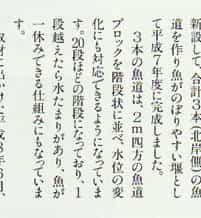 新設して、合計3本(北岸側)の魚
道を作り魚がのぼりやすい堰とし
て平成7年度に完成しました。
3本の魚道は、2m四方の魚道
ブロックを階段状に並べ、水位の変
化にも対応できるようになっていま
す。20段ほどの階段になっており、1
段越えたら水たまりがあり、魚が
一休みできる仕組みにもなっていま
す。